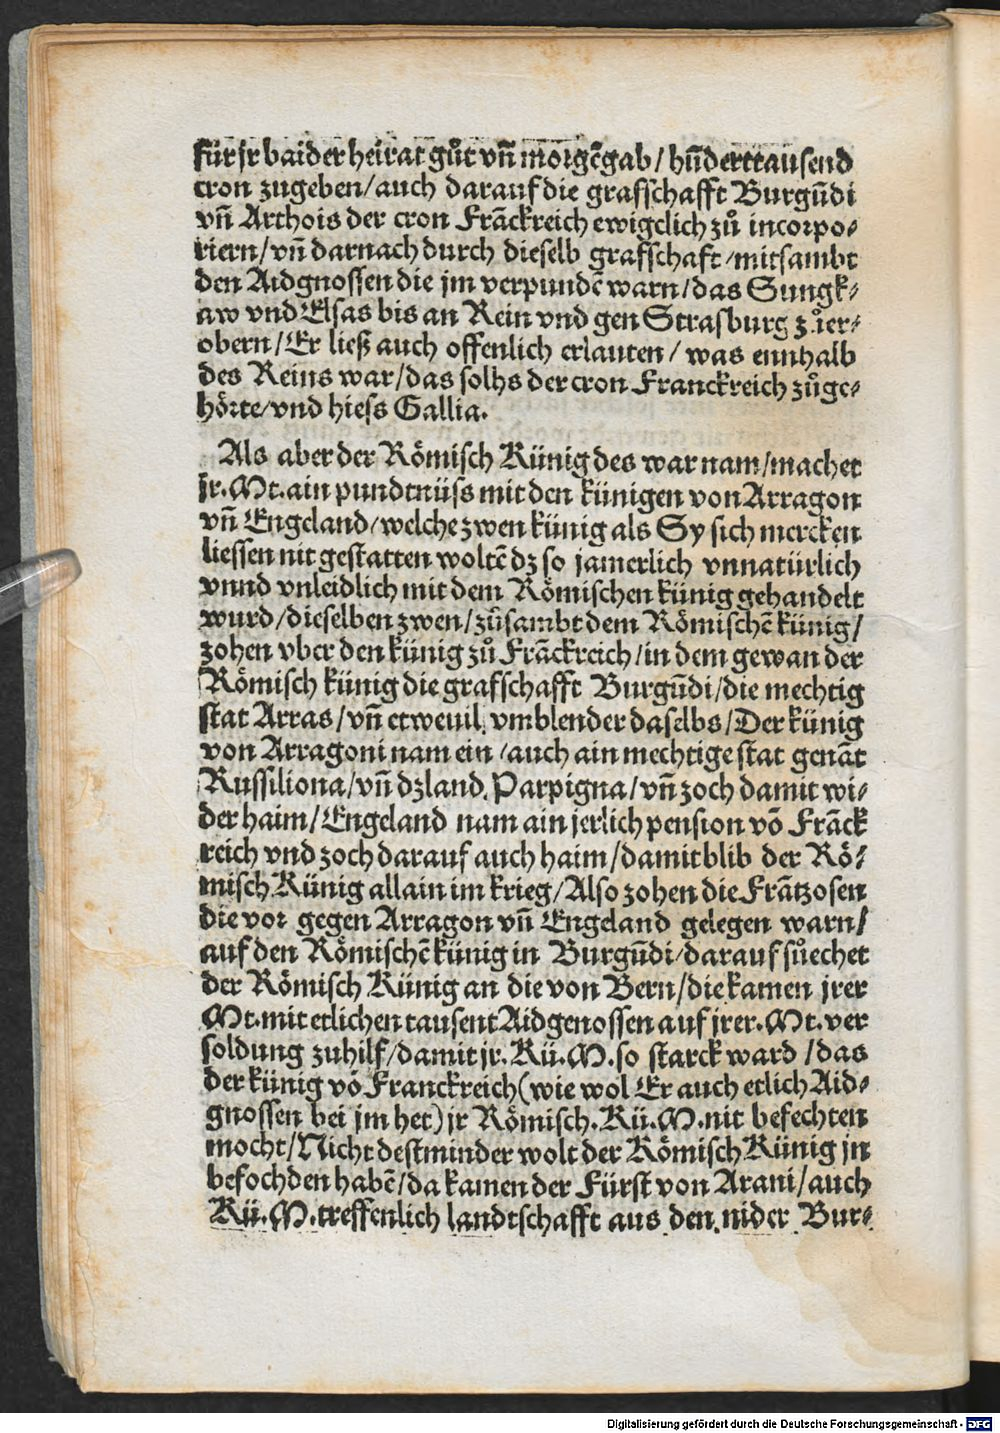 für jr baider heirat gůt vñ morgẽgab / hũderttausend
cron zugeben / auch darauf die grafschafft Burgũdi
vñ Arthois der cron Frãckreich ewigclich zů incorpo⸗
riern / vñ darnach durch dieselb grafschaft / mitsambt
den Aidgnossen die jm verpundẽ warn / das Sungk⸗
aw vnd Elsas bis an Rein vnd gen Strasburg zůer⸗
obern / Er ließ auch offenlich erlauten / was ennhalb
des Reins war / das solhs der cron Franckreich zůge⸗
hörte / vnd hiess Gallia.
Als aber der Römisch Künig des war nam / machet
jr. Mt. ain pundtnüss mit den künigen von Arragon
vñ Engeland / welche zwen künig als Sy sich mercken
liessen nit gestatten woltẽ dz so jamerlich vnnatürlich
vnnd vnleidlich mit dem Römischen künig gehandelt
wurd / dieselben zwen / zůsambt dem Römischẽ künig /
zohen vber den künig zů Frãckreich / in dem gewan der
Römisch künig die grafschafft Burgũdi / die mechtig
stat Arras / vñ etweuil vmblender daselbs / Der künig
von Arragoni nam ein / auch ain mechtige stat genãt
Russiliona / vñ dz land Parpigna / vñ zoch damit wi⸗
der haim / Engeland nam ain jerlich pension võ Frãck
reich vnd zoch darauf auch haim / damit blib der Rö⸗
misch Künig allain im krieg / Also zohen die Frãtzosen
die vor gegen Arragon vñ Engeland gelegen warn /
auf den Römischẽ künig in Burgũdi / darauf sůechet
der Römisch Künig an die von Bern / die kamen jrer
Mt. mit etlichen tausent Aidgenossen auf jrer. Mt. ver
soldung zuhilf / damit jr. Kü. M. so starck ward / das
der künig võ Franckreich (wie wol Er auch etlich Aid⸗
gnossen bei jm het) jr Römisch. Kü. M. nit befechten
mocht / Nicht destminder wolt der Römisch Künig jn
befochden habẽ / da kamen der Fürst von Arani / auch
Kü. M. treffenlich landtschafft aus den nider Bur⸗
Digitalisierung gefördert durch die Deutsche Forschungsgemeinschaft - DFG